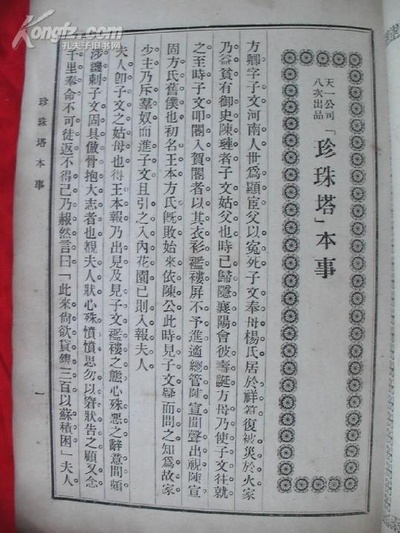 天一公司
八次出品
「珍珠塔」本事
方卿字子文河南人世爲顯宦父以寃死子文奉母楊氏居於祥符復被災於火家
乃益貧有御史陳璉者子文姑父也時已歸隱襄陽會彼壽誕方母乃使子文往就
之至時子文叩閽入賀閽者以其衣衫襤褸屏不予進適總管陳宣聞聲出視陳宣
固方氏舊僕也初名王本方氏旣敗始來依陳公此時見子文驚而問之知爲故家
少主乃斥羣奴而進子文且引之入內花園已則入報夫人
夫人卽子文之姑母也得王本報乃出見及見子文襤褸之態心殊惡之辭意間頗
涉譏刺子文固具傲骨抱大志者也覩夫人狀心殊憤憤思勿以窮狀告之顧又念
千里奉命不可徒返不得已乃赧然言曰「此來尙欲貸鏹三百以蘇積困」夫人
珍珠塔本事
一
Kongfz.com
孔夫子旧书网